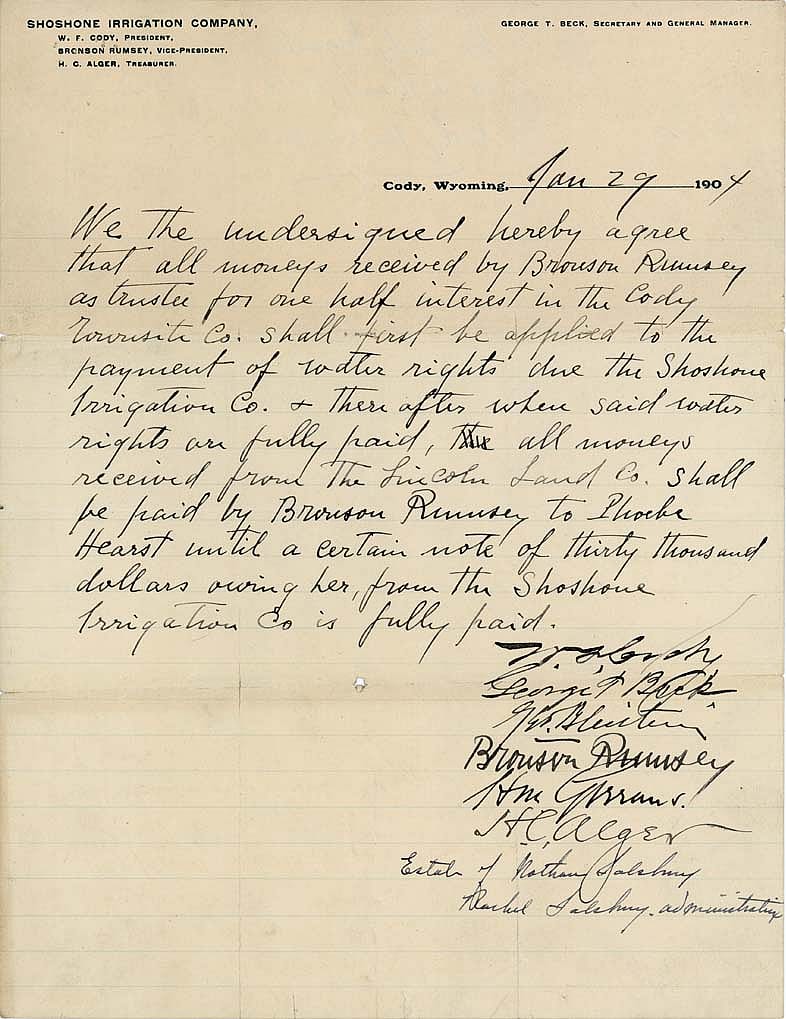 SHOSHONE IRRIGATION COMPANY,
W. F. CODY, PRESIDENT,
BRONSON RUMSEY, VICE-PRESIDENT,
H. C. ALGER, TREASURER.
GEORGE T. BECK, SECRETARY AND GENERAL MANAGER.
Cody, Wyoming, Jan 29 1904
We the undersigned hereby agree
that all moneys received by Bronson Rumsey
as trustee for one half interest in the Cody
Townsite Co. shall first be applied to the
payment of water rights due the Shoshone
Irrigation Co. & there after when said water
rights are fully paid, all moneys
received from the Lincoln Land Co. shall
be paid by Bronson Rumsey to Phoebe
Hearst until a certain note of thirty thousand
dollars owing her, from the Shoshone
Irrigation Co is fully paid.
W. F. Cody
George T Beck
Geo. Bleistein
Bronson Rumsey
HM Gerrans.
H. C. Alger
Estate of Nathan Salsbury
Rachel Salsbury. administratrix